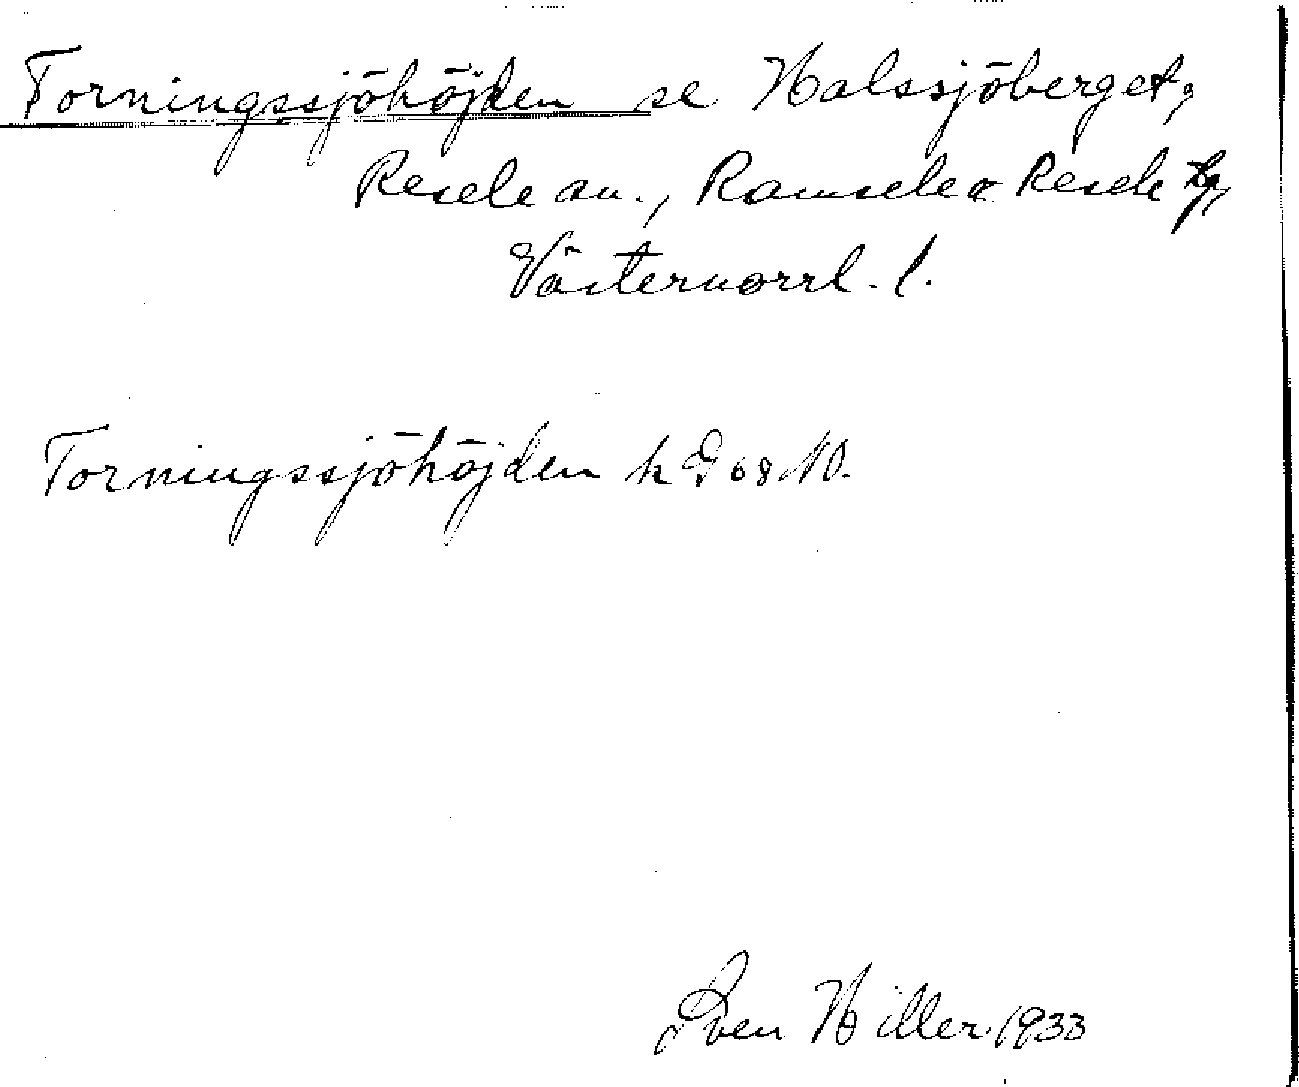 Torningssjöhöjden se Halssjöberget,
Resele sn., Ramsele o Resele tg,
Västernorrl. l.
Torningssjöhöjden h G 68 NO.
Sven Hiller 1933